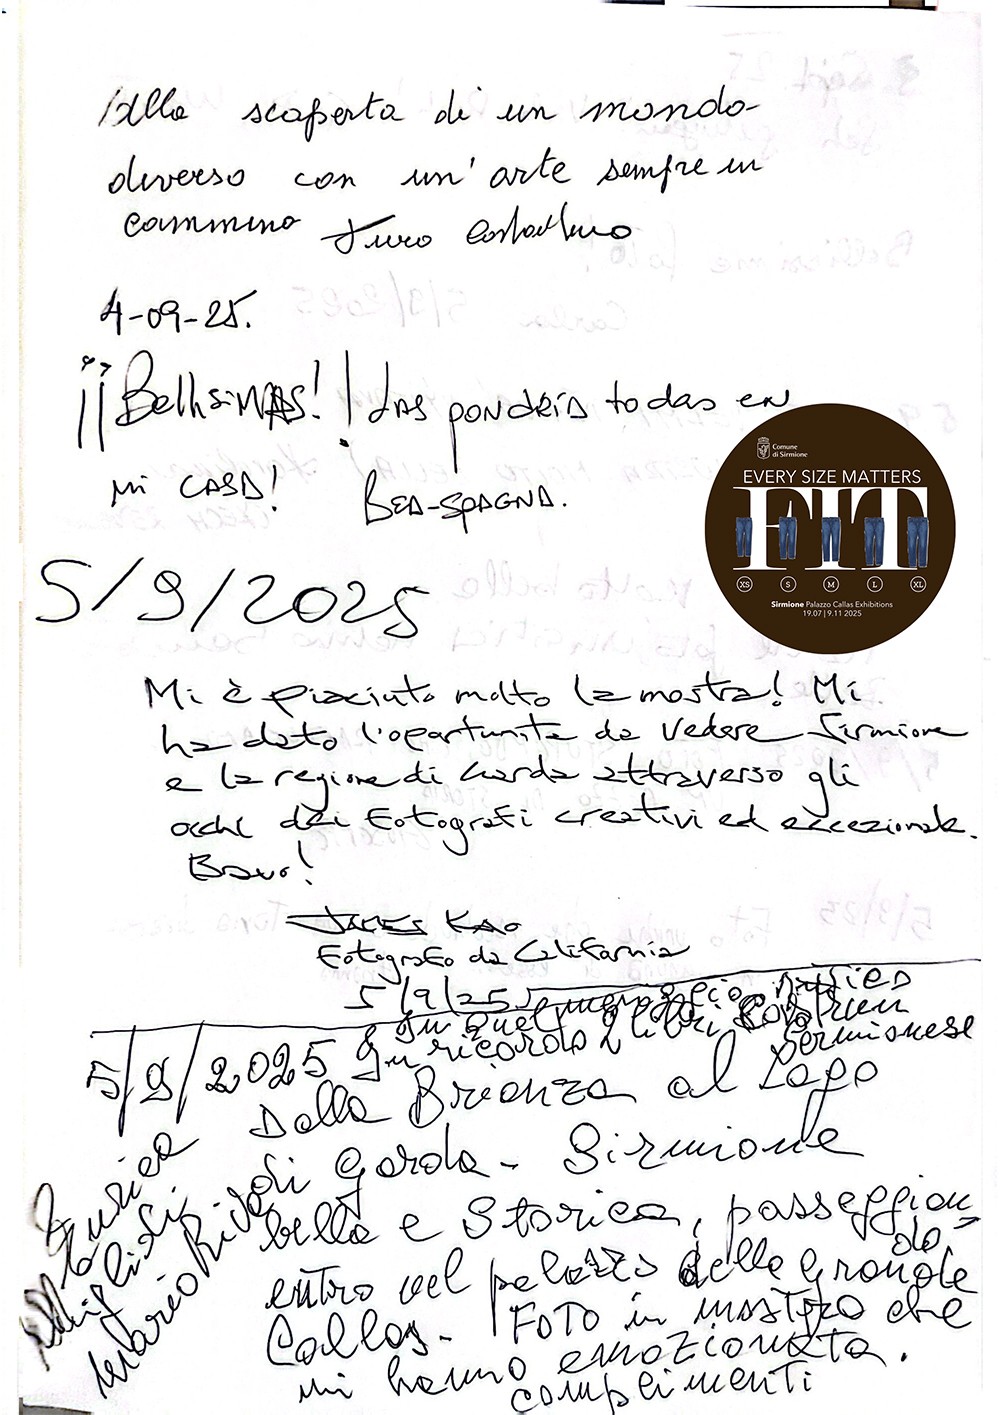 Alla scoperta di un mondo
diverso con un'arte sempre in
cammino
4-09-25.
¡¡Bellisimas! ! Las pondría todas en
mi CASA! BEA-SPAGNA.
Comune
di Sirmione
EVERY SIZE MATTERS
FIT
XS S M L XL
Sirmione Palazzo Callas Exhibitions
19.07 | 9.11 2025
5/9/2025
Mi è piaciuto molto la mostra! Mi
ha dato l'oportunita da vedere Sirmione
e la regione di Garda attraverso gli
occhi dei Fotografi creativi ed eccezionale.
Bravo!
Kao
Fotografo da California
5/9/25
5/9/2025
In ricordo 2 libri
Sermionese
Dalla Brianza al Lago
di Garda - Sirmione
bella e Storica, passeggian
do
entro nel palazzo della Grande
Callas - FOTO in mostra che
mi hanno emozionata.
complimenti
Enrica
Mario Riva